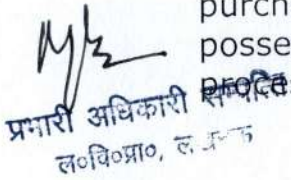 purch
posse
proce
प्रभारी अधिकारी सम्पत्ति
ल०वि०प्रा०, ल